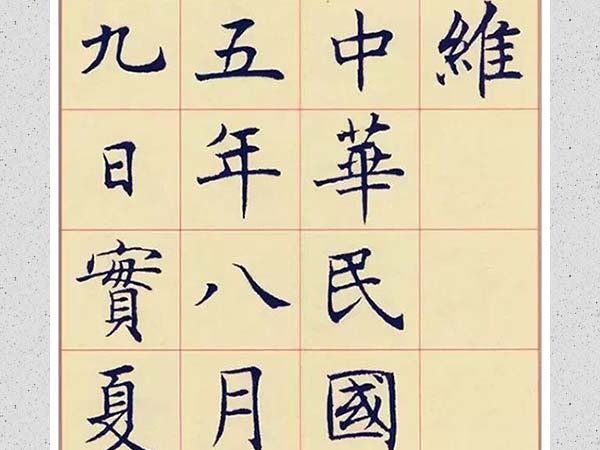 維
中華民國
五年八月
九日實夏